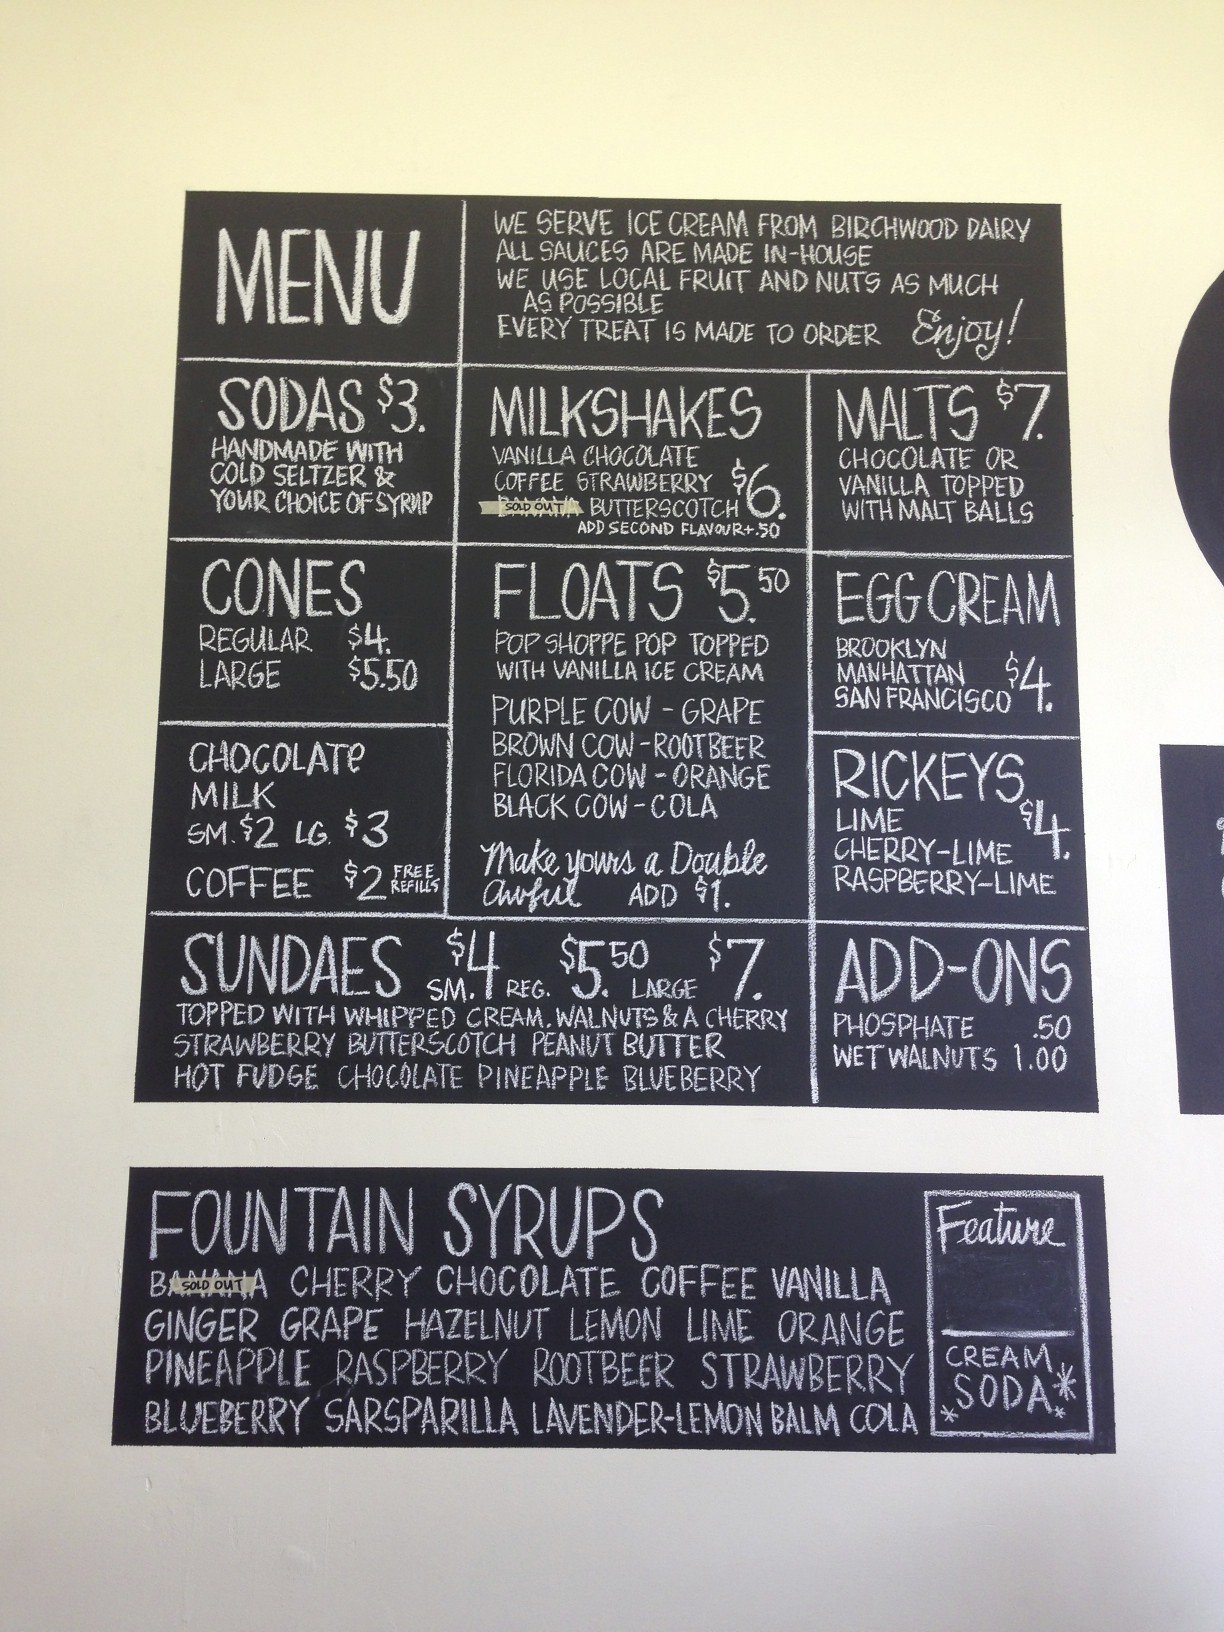 MENU
WE SERVE ICE CREAM FROM BIRCHWOOD DAIRY
ALL SAUCES ARE MADE IN-HOUSE
WE USE LOCAL FRUIT AND NUTS AS MUCH
AS POSSIBLE
EVERY TREAT IS MADE TO ORDER Enjoy!
SODAS $3.
HANDMADE WITH
COLD SELTZER &
YOUR CHOICE OF SYRUP
MILKSHAKES
VANILLA CHOCOLATE
COFFEE STRAWBERRY $6.
BANANA SOLD OUT BUTTERSCOTCH
ADD SECOND FLAVOUR +.50
MALTS $7.
CHOCOLATE OR
VANILLA TOPPED
WITH MALT BALLS
CONES
REGULAR $4.
LARGE $5.50
FLOATS $5.50
POP SHOPPE POP TOPPED
WITH VANILLA ICE CREAM
PURPLE COW - GRAPE
BROWN COW - ROOTBEER
FLORIDA COW - ORANGE
BLACK COW - COLA
Make yours a Double
Awful ADD $1.
EGG CREAM
BROOKLYN
MANHATTAN $4.
SAN FRANCISCO
CHOCOLATE
MILK
SM. $2 LG. $3
COFFEE $2 FREE
REFILLS
RICKEYS
LIME $4.
CHERRY-LIME
RASPBERRY-LIME
SUNDAES $4 SM. $5.50 REG. $7. LARGE
TOPPED WITH WHIPPED CREAM, WALNUTS & A CHERRY
STRAWBERRY BUTTERSCOTCH PEANUT BUTTER
HOT FUDGE CHOCOLATE PINEAPPLE BLUEBERRY
ADD-ONS
PHOSPHATE .50
WET WALNUTS 1.00
FOUNTAIN SYRUPS
BANANA SOLD OUT CHERRY CHOCOLATE COFFEE VANILLA
GINGER GRAPE HAZELNUT LEMON LIME ORANGE
PINEAPPLE RASPBERRY ROOTBEER STRAWBERRY
BLUEBERRY SARSPARILLA LAVENDER-LEMON BALM COLA
Feature
CREAM
SODA